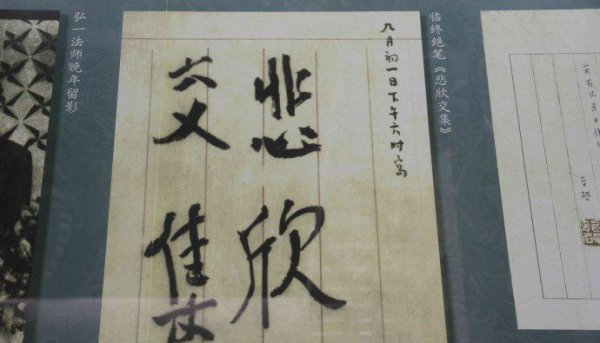 临终绝笔《悲欣交集》
九月初一日下午六时写
悲欣
交集
弘一法师晚年留影